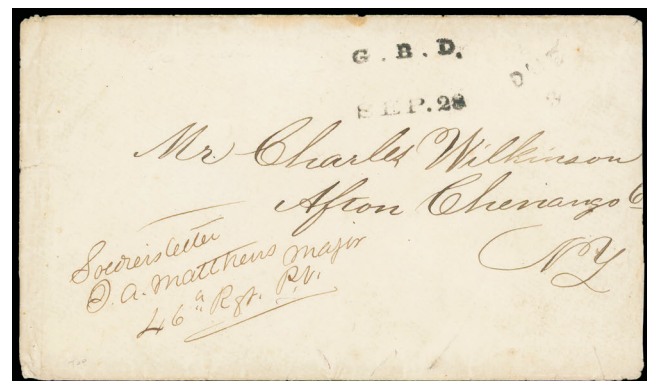 G. B. D.
SEP. 28
DUE
Mr. Charles Wilkinson
Afton Chenango Co
NY
Soldiers letter
D. A. Matthews Major
46" Rgt. P.V.